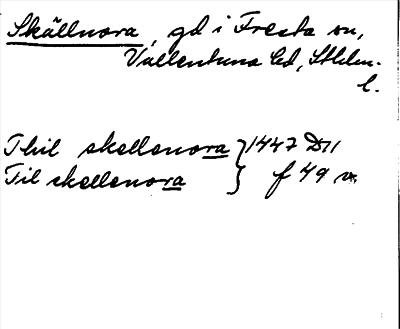 Skällnora, gd i Fresta sn,
Vallentuna hd, Sthlm.
l.
Thil skellenora } 1447 D11
Til skellenora } f 49 v.